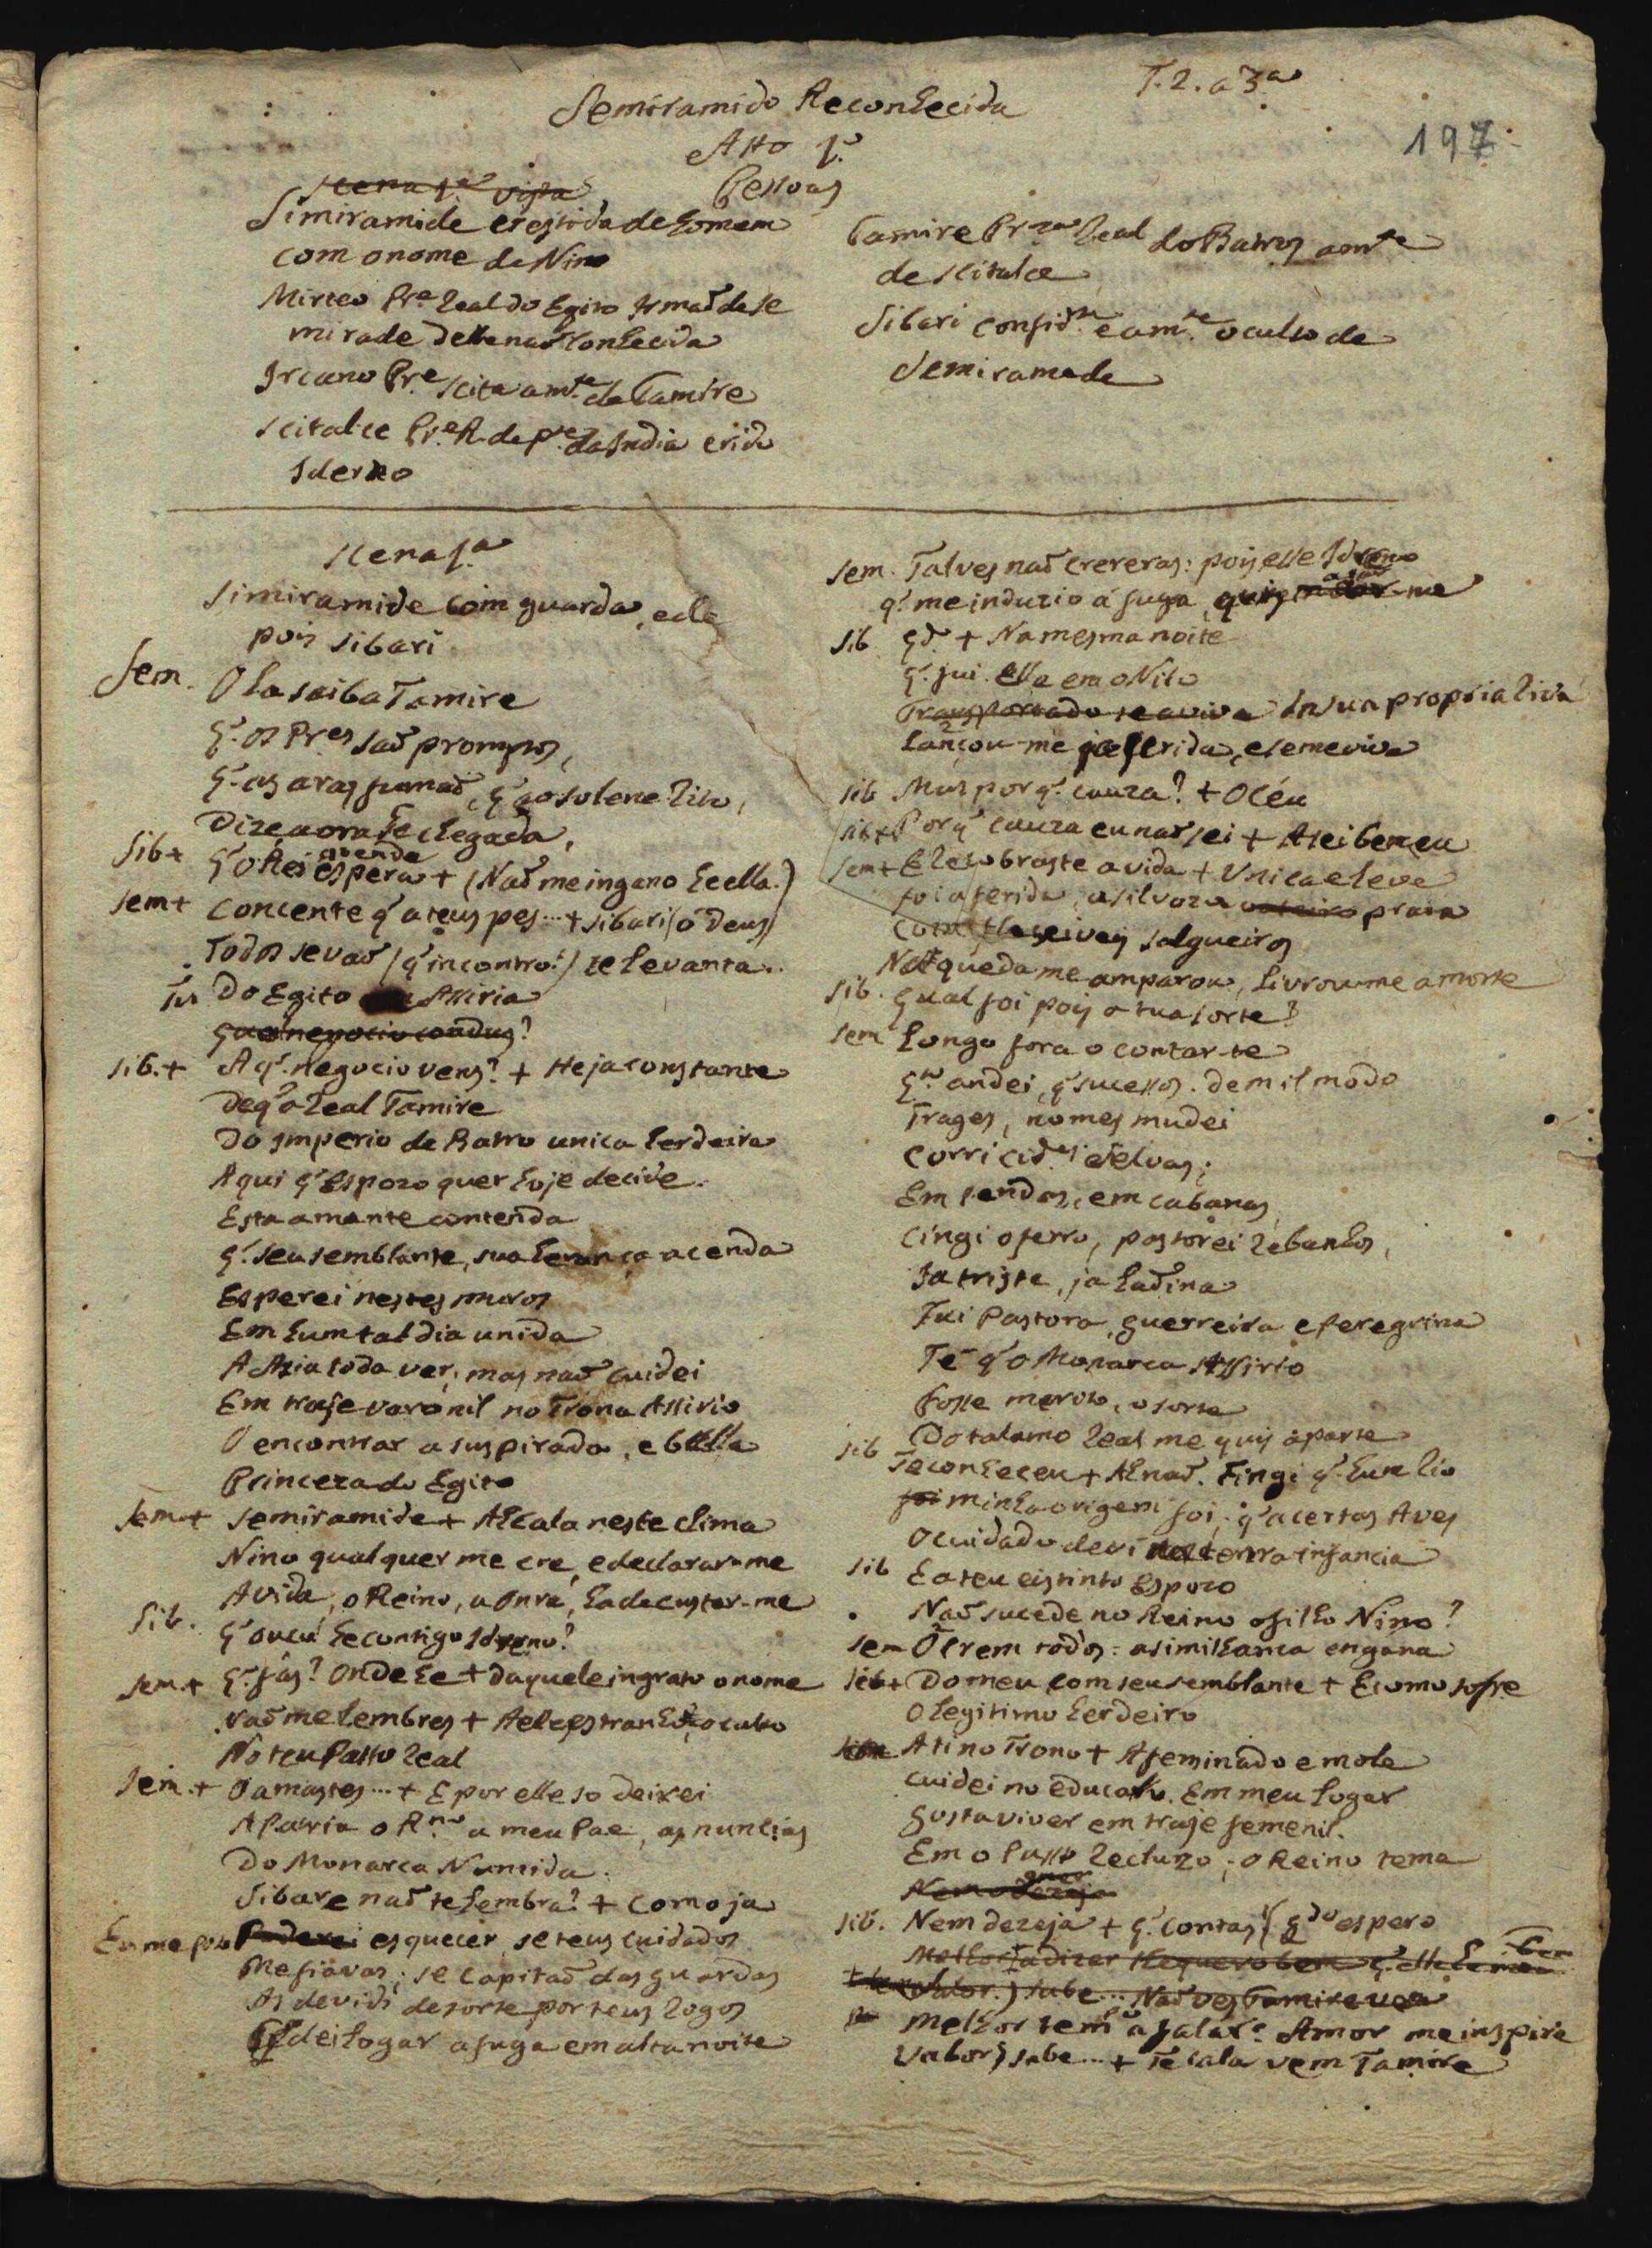 T. 2. a 3ª
Semiramide Reconhecida
197
Atto 1º
Pessoas
Scena 1ª vista
Simiramide vestida de homem
com o nome de Nino
Mirteo Pre. Real do Egito Irmaõ de Se
mirade della naõ conhecida
Ircano Pre. Scita amte. de Tamire
Scitalce Pre. R. de pte. da India
Idreno
Tamire Prza. Real do Batros amte
de Scitalce
Sibari confidte. e amte. oculto de
Semiramede
Scena 1ª
Simiramide com guarda, e de
pois Sibari
Sem. Ola saiba Tamire
q. os Pres saõ promptos,
q. as aras fumaõ, q. ao solene Rito,
Dize a ora he chegada,
atende
Sib + q o Rei espera + (Naõ me ingano he ella.)
Sem + Concente q a teus pes... + Sibari (ó Deus)
Todos se vaõ (q incontro!) te levanta..
Do Egito Assiria
negocio condus?
Sib. + A q. negocio vens? + He ja constante
De q a Real Tamire
Do Imperio de Batro unica herdeira
Aqui q Espozo quer hoje decide.
Esta amante contenda
q. seu semblante, sua herança acenda
Esperei nestes muros
Em hum tal dia unida
A Azia toda ver, mas naõ cuidei
Em traje varonil no Trono Assirio
O encontrar a suspirada, e bella
Princeza do Egito
Sem + Semiramide + Ah cala neste clima
Nino qualquer me cre, e declarar-me
A vida, o Reino, a onra, ha de custar-me
Sib. q ouço! he contigo Idreno?
Sem. + q. fas? Onde he + daquele ingrato o nome
Naõ me lembres + Aeles oculto
No teu Passo real
Sem. + O amastes... + E por elle so deixei
A Patria o Rno. a meu Pae, as nuncias
Do Monarca Numida.
Sibare naõ te lembra? + Como ja
Eu me poso Poderei esquecer, se teus cuidados
Me fiavas; se capitaõ das guardas
As devidi de sorte por teus rogos
q dei logar a fuga em alta noite
Sem. Talves naõ creras: pois esse Idreno
q. me induzio á fuga, quis matar-me
Sib. qdo. + Na mesma noite
q. fui. Elle em o Nilo
Transportado se aviva Da sua propria
Lançou-me ja ferida, e semeviva
Sib Mas por q. cauza? + O Céu
Sib + Por q cauza eu naõ sei + A sei bem eu
Sem + E recobraste a vida + Unica e leve
foi a ferida, a silvoza praia
Com flexiveis salgueiros
Na queda me amparou, livrou-me a morte
Sib. qual foi pois a tua sorte?
Sem Longo fora o contar-te
qto. andei, q sucessos. de mil modo
Trages, nomes mudei
Corri cides. e selvas;
Em tendas, em cabanas,
Cingi o ferro, pastorei rebanhos,
Ja triste, ja ladina
Fui Pastora, guerreira e peregrina
Té q o Monarca Assirio
Fosse merito, o sorte
Do talamo real me quis á parte
Sib Te conheceu + Ah naõ. Fingi q. hum Rio
foi minha origem foi, q a certas Aves
O cuidado devi na tenra infancia
Sib E a teu eistinto Espozo
Naõ sucede no Reino o filho Nino?
Sem O crem todos: a similhanca engana
Sib + Do meu com seu semblante + E como sofre
O legitimo herdeiro
A ti no Trono + Afeminado e mole
Cuidei no educalo. Em meu logar
Gosta viver em traje femenil.
Em o Passo recluzo; o Reino tema
Nem o dezeja
Sib. Nem dezeja + q. contas! (qdo espero
Melhor
valor.) sabe... Naõ ves Tamire vem
Melhor tempo a falar? Amor me inspira
Valor) sabe... + Te cala vem Tamire